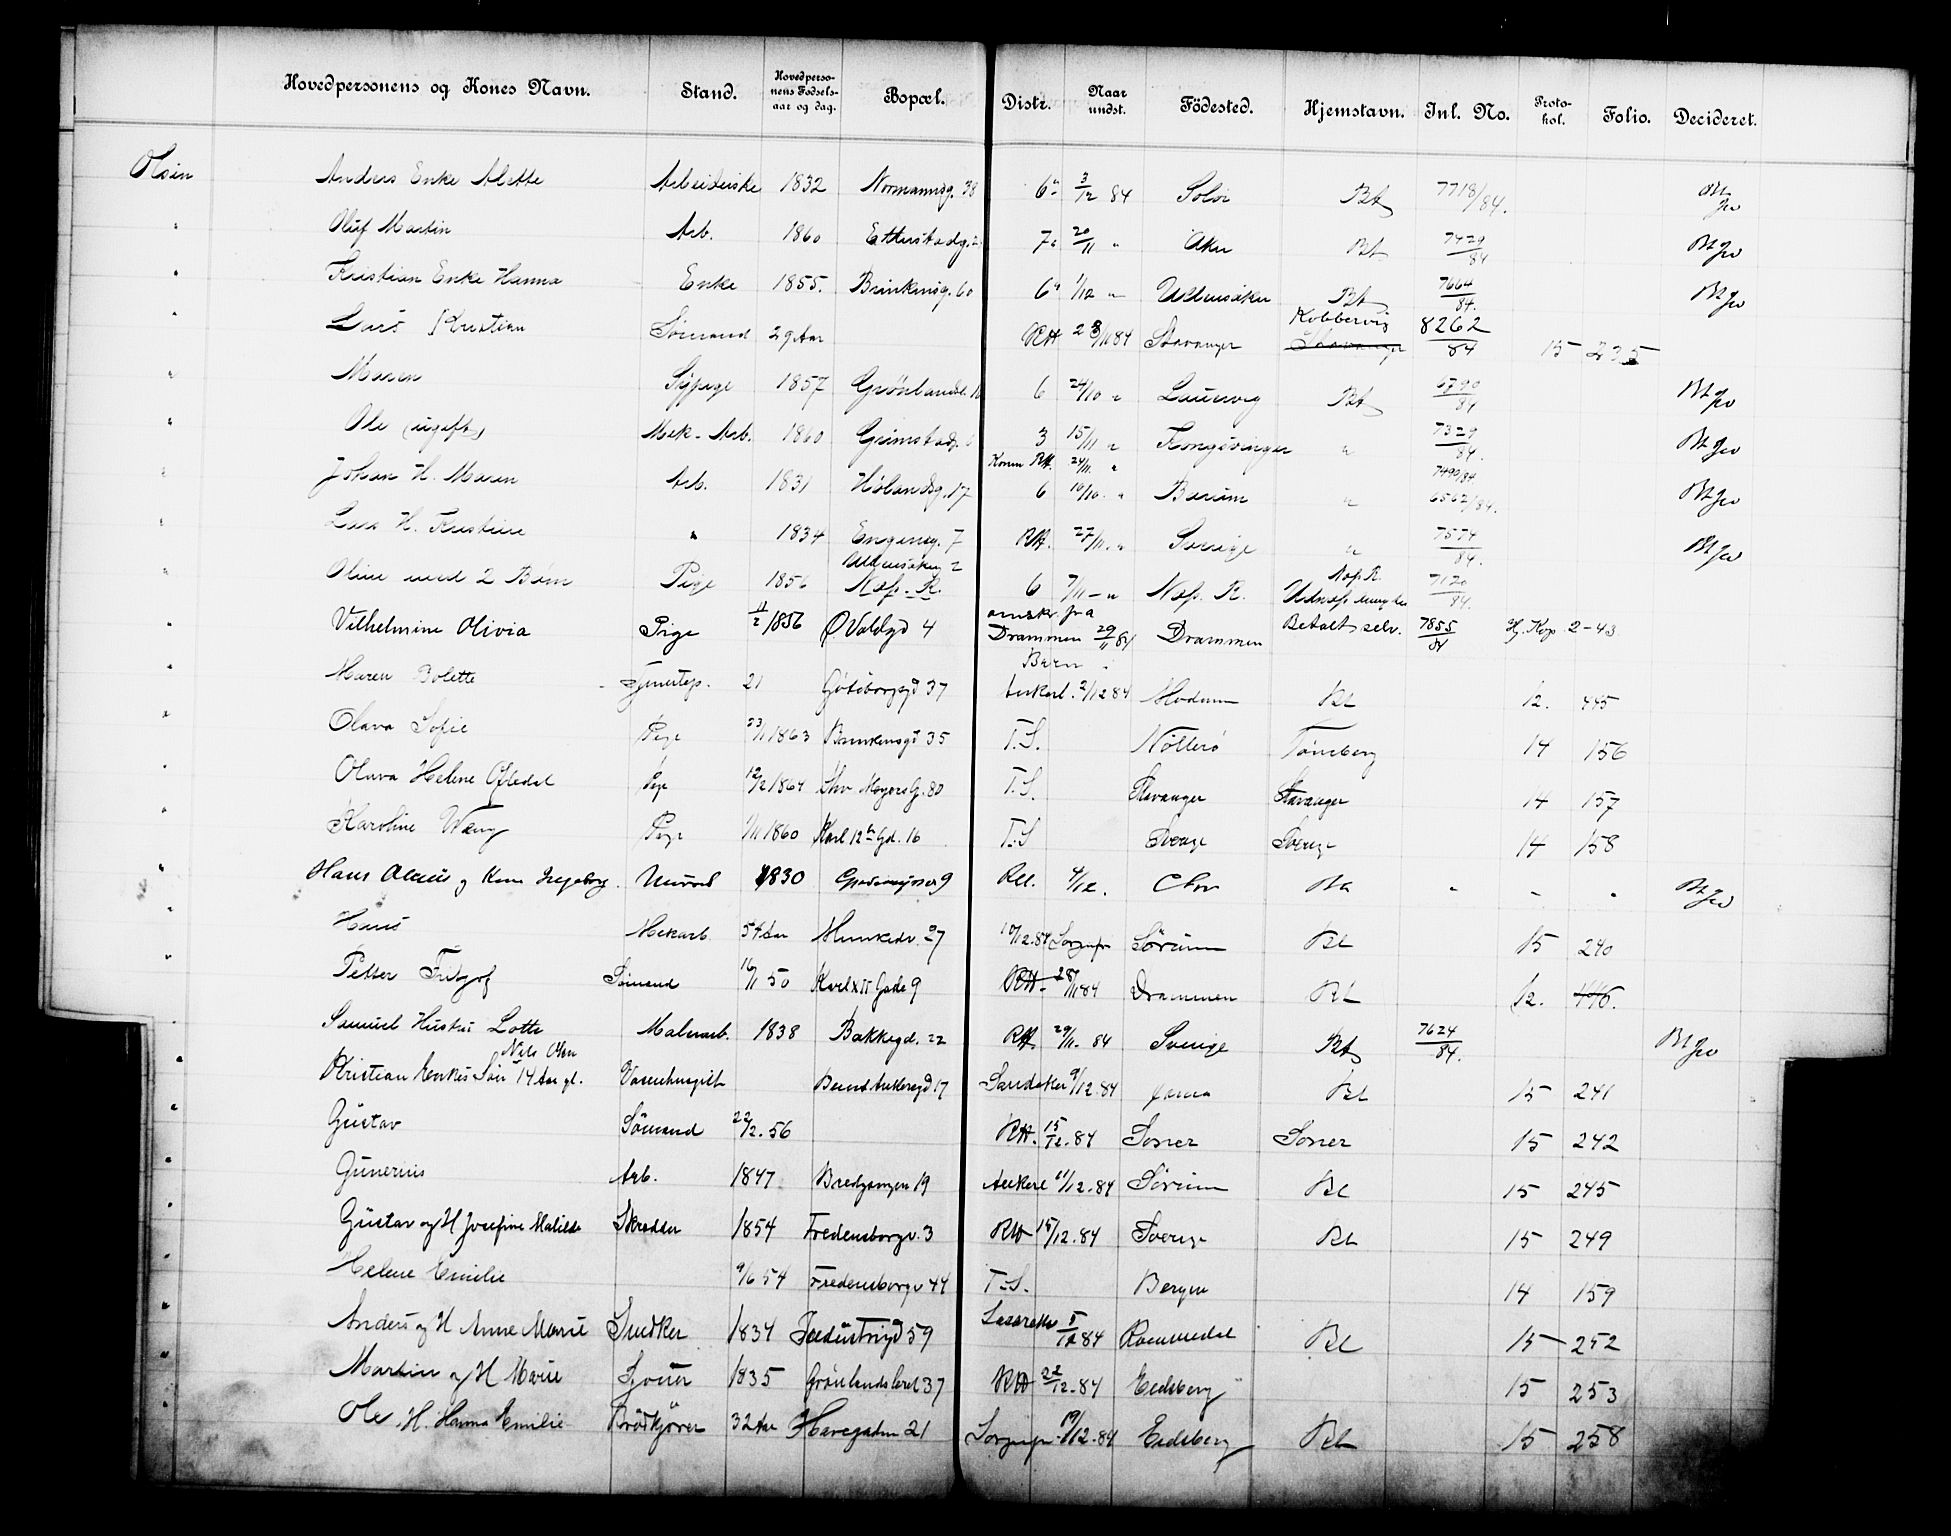 Hovedpersonens og Kones Navn. Stand. Hovedpersonens Fødselsaar og dag. Bopæl. Distr. Naar undst. Födested. Hjemstavn. Inl. No. Protokol. Folio. Decideret.
Olsen Anders Enke Alette Arbeiderske 1832 Normannsg. 38 6 3/12 84 Solør Bt 7718/84. Bt
" Oluf Martin Arb. 1860 Etterstadg. 7 20/11 " Aker Bt 7429/84 Bt
" Kristian Enke Hanna Enke 1855. Brinkensg. 60 6 1/12 " Ullensaker Bt 7664/84. Bt
" Lars Kristian Sömand 29 Aar RH 28/11 84 Stavanger Kobbervig 8262/84 15 235
" Maren Sypige 1857 Grønlandsl. 6 24/10 " Laurvig Bt 6790/84 Bt
" Ole (ugift) Mek. Arb. 1860 Grimstadg. 3 15/11 " Kongsvinger " 7329/84. Bt
Konen RH. 24/11. " 7490/84.
" Johan H. Maren Arb. 1831 Hölandsg. 17 6 10/10. " Bærum " 6562/84. Bt
" Lars H. Kristine " 1834 Engensg. 7 RH. 27/11. " Sverige " 7574/84. Bt
" Oline med 2 Børn Pige 1856 Ullensakerg 2 Næs. R. 6 7/11 - " Næs. R. Næs R. 7120/84.
" Vilhelmine Olivia Pige 11/2 1856 Ø Voldgd 4 omskr. fra Drammen 29/11 84 Drammen Betalt selv. 7855/84 Hj. Kop. 2-43
" Maren Bolette Tjenestep. 21 Götéborggd 37 Barn Ankerl. 2/12 84 Modum Bt 12. 445
" Olava Sofie Pige 23/11 1863 Brinkensgd 35 T.S. Nötterö Tönsberg 14 156
" Olava Helene Oftedal Pige 12/2 1864 Thv Meyers G. 80 T.S. Stavanger Stavanger 14 157
" Karoline Wang Pige 1/11 1860 Karl 12te Gd. 16 T.S Sverige Sverige 14 158
" Hans og Kone Ingeborg. Murarb 1830 9 RH. 4/12. Bt " - " Bt
" Hans Mekarb 54 Aar Munkedv. 27 10/12.84 Sorgenfri Sörum Bt 15 240
" Petter Fritjof Sömand 16/11 50 Karl XII Gade 9 RH. 28/11 84 Drammen Bt 12. 446.
" Samuel Hustru Lotte Malerarb. 1838 Bakkegd. 22 RH. 29/11. 84 Sverige Bt 7624/84. Bt
Nils Olsen
" Kristian Enkes Sön 14 Aar gl. Bernt Ankersgd 17 Sandaker 9/12.84 Bt 15 241
" Gustav Sömand 22/2. 56 RH. 15/12.84 Soner Soner 15 242
" Gunerius Arb. 1847 Bredgangen 19 Ankerl 11/12.84 Sörum Bt 15 245
" Gustav og H Josefine Matilde Skrædder 1854 Fredensborgv. 3 RH 15/12.84 Sverige Bt 15 249
" Helene Emilie 9/6 54 Fredensborgv 44 T.S. Bergen 14 159
" Anders og H Anne Marie Snedker 1834 Industrigd 59 Lazareth 5/12 84 Romedal Bt 15 252
" Martin og H Marie Sjouer 1835 Grönlandsleret 37 RH 22/12.84 Eidsberg 15 253
" Ole. H. Hanna Emilie Brödkjører 32 Aar Havegaden 21 Sorgenfr. 19/12.84 Eidsberg Bt 15 258